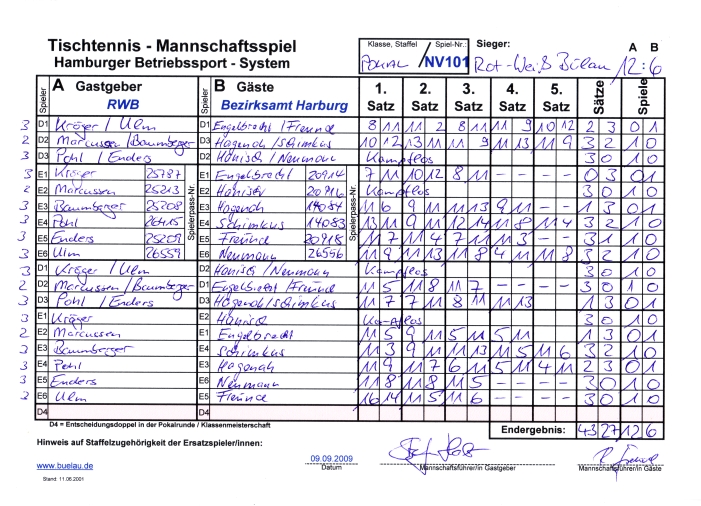 Tischtennis - Mannschaftsspiel
Hamburger Betriebssport - System
Klasse, Staffel / Spiel-Nr.: Sieger: A B
Pokal / NV101 Rot-Weiß Bülau 12:6
Spieler A Gastgeber RWB Spieler B Gäste Bezirksamt Harburg 1. Satz 2. Satz 3. Satz 4. Satz 5. Satz Sätze Spiele
3 D1 Kröger / Ulm D1 Engelbrecht / Freund 8 11 11 2 8 11 11 9 10 12 2 3 0 1
2 D2 Marcussen / Baumberger D3 Hagenah / Schimkus 10 12 13 11 11 9 11 13 11 9 3 2 1 0
3 D3 Pohl / Enders D2 Hönisch / Neumann Kampflos 3 0 1 0
3 E1 Kröger 25787 E1 Engelbrecht 20914 7 11 10 12 8 11 - - - - 0 3 0 1
2 E2 Marcussen 25213 E2 Hönisch 20916 Kampflos 3 0 1 0
3 E3 Baumberger 25208 E3 Hagenah 14084 11 6 9 11 11 13 9 11 - - 1 3 0 1
3 E4 Pohl 26415 E4 Schimkus 14083 13 11 9 11 12 14 11 8 11 4 3 2 1 0
3 E5 Enders 25209 E5 Freund 20918 11 7 11 4 7 11 11 3 - - 3 1 1 0
3 E6 Ulm 26559 E6 Neumann 26556 11 9 11 13 11 8 4 11 11 8 3 2 1 0
Spielerpass-Nr. Spielerpass-Nr.
D1 Kröger / Ulm D2 Hönisch / Neumann Kampflos 3 0 1 0
2 D2 Marcussen / Baumberger D1 Engelbrecht / Freund 11 5 11 8 11 7 3 0 1 0
3 D3 Pohl / Enders D3 Hagenah / Schimkus 11 7 7 11 8 11 11 13 1 3 0 1
3 E1 Kröger E2 Hönisch Kampflos 3 0 1 0
2 E2 Marcussen E1 Engelbrecht 11 5 9 11 5 11 5 11 1 3 0 1
2 E3 Baumberger E4 Schimkus 11 3 9 11 11 13 11 5 11 6 3 2 1 0
3 E4 Pohl E3 Hagenah 11 9 11 7 6 11 5 11 4 11 2 3 0 1
3 E5 Enders E6 Neumann 11 8 11 8 11 5 - - - - 3 0 1 0
2 E6 Ulm E5 Freund 16 14 11 5 11 6 - - - - 3 0 1 0
D4 D4
D4 = Entscheidungsdoppel in der Pokalrunde / Klassenmeisterschaft Endergebnis: 43 27 12 6
Hinweis auf Staffelzugehörigkeit der Ersatzspieler/innen:
www.buelau.de 09.09.2009
Datum Mannschaftsführer/in Gastgeber Mannschaftsführer/in Gäste
Stand: 11.06.2001